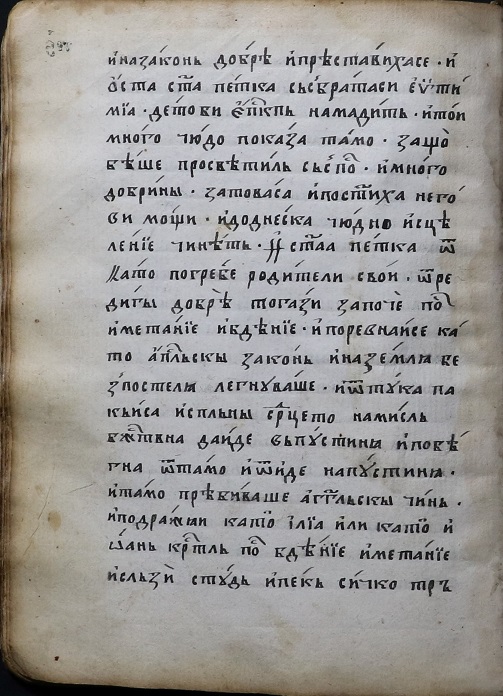 и҆назако́нь добрѣ̀ и҆прѣста́вихасе · и҆
ѡ҆ста ст҃а пе́тка сьсбра́таси еѵ҆ти́
мїа · де́тоби є҆пⷭ҇кпь намади́ть · и҆то́и
мно́го чю́до показа тамо · защо̀
бѣ́ше просвѣти́ль сьспо́ⷭ · и҆мно́го
добрины̀ · зато́васа и҆пости́ха него́
ви мо́щи · и҆додне́ска чю́дно и҆сцѣ
ле́нїе чинѣ́ть · И҆ ст҃аа пе́тка ѿ
като̀ погребе́ роди́тели свои́ · ѿре
ди́гы добрѣ̀ тога́зи започѐ поⷭ҇
и҆мета́нїе и҆бдѣ́нїе · и҆поревна́исе ка́
то а҆пⷭ҇льскы зако́нь и҆назе́млꙗ бе
зпосте́лꙗ легнꙋва́ше · и҆ѿтꙋ́ка па
къи́са и҆спльны срⷣцето нами́сль
бжⷭ҇твна да́иде вьпꙋсти́нꙗ и҆побѣ́
гна ѿта́мо и҆ѿи́де напꙋ́стинꙗ ·
и҆та́мо прѣбива́ше а҆гг҃льскы чи́нь ·
и҆подража́и като̀ и҆лїа и҆ли като̀ и҆
ѡ҆а́нь крⷭ҇тль поⷭ҇ бдѣ́нїе и҆мета́нїе
и҆сльзѝ стꙋ́дь и҆пе́кь си́чко трь